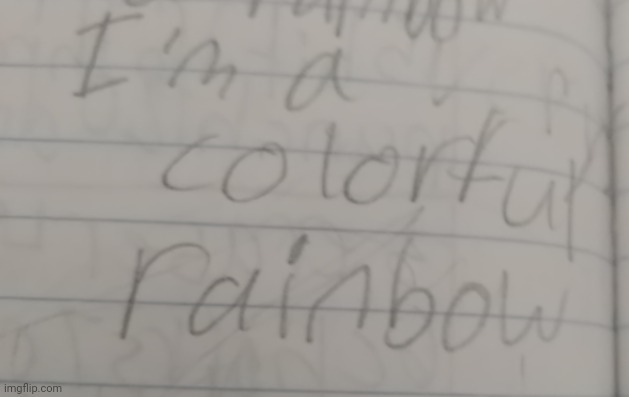 rainbow
I'm a
colorful
rainbow
imgflip.com